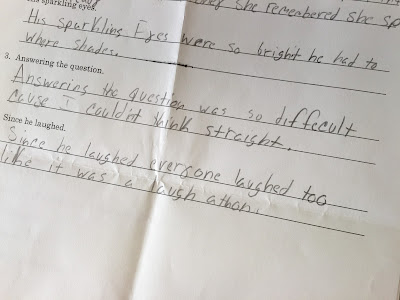 his sparkling eyes.
she remembered she sp
His sparkling Eyes were so bright he had to
Whore Shades.
3. Answering the question.
Answering the question was so diffecult
cause I couldn't think straight.
Since he laughed.
Since he laughed everyone laughed too
like it was a laugh athon.